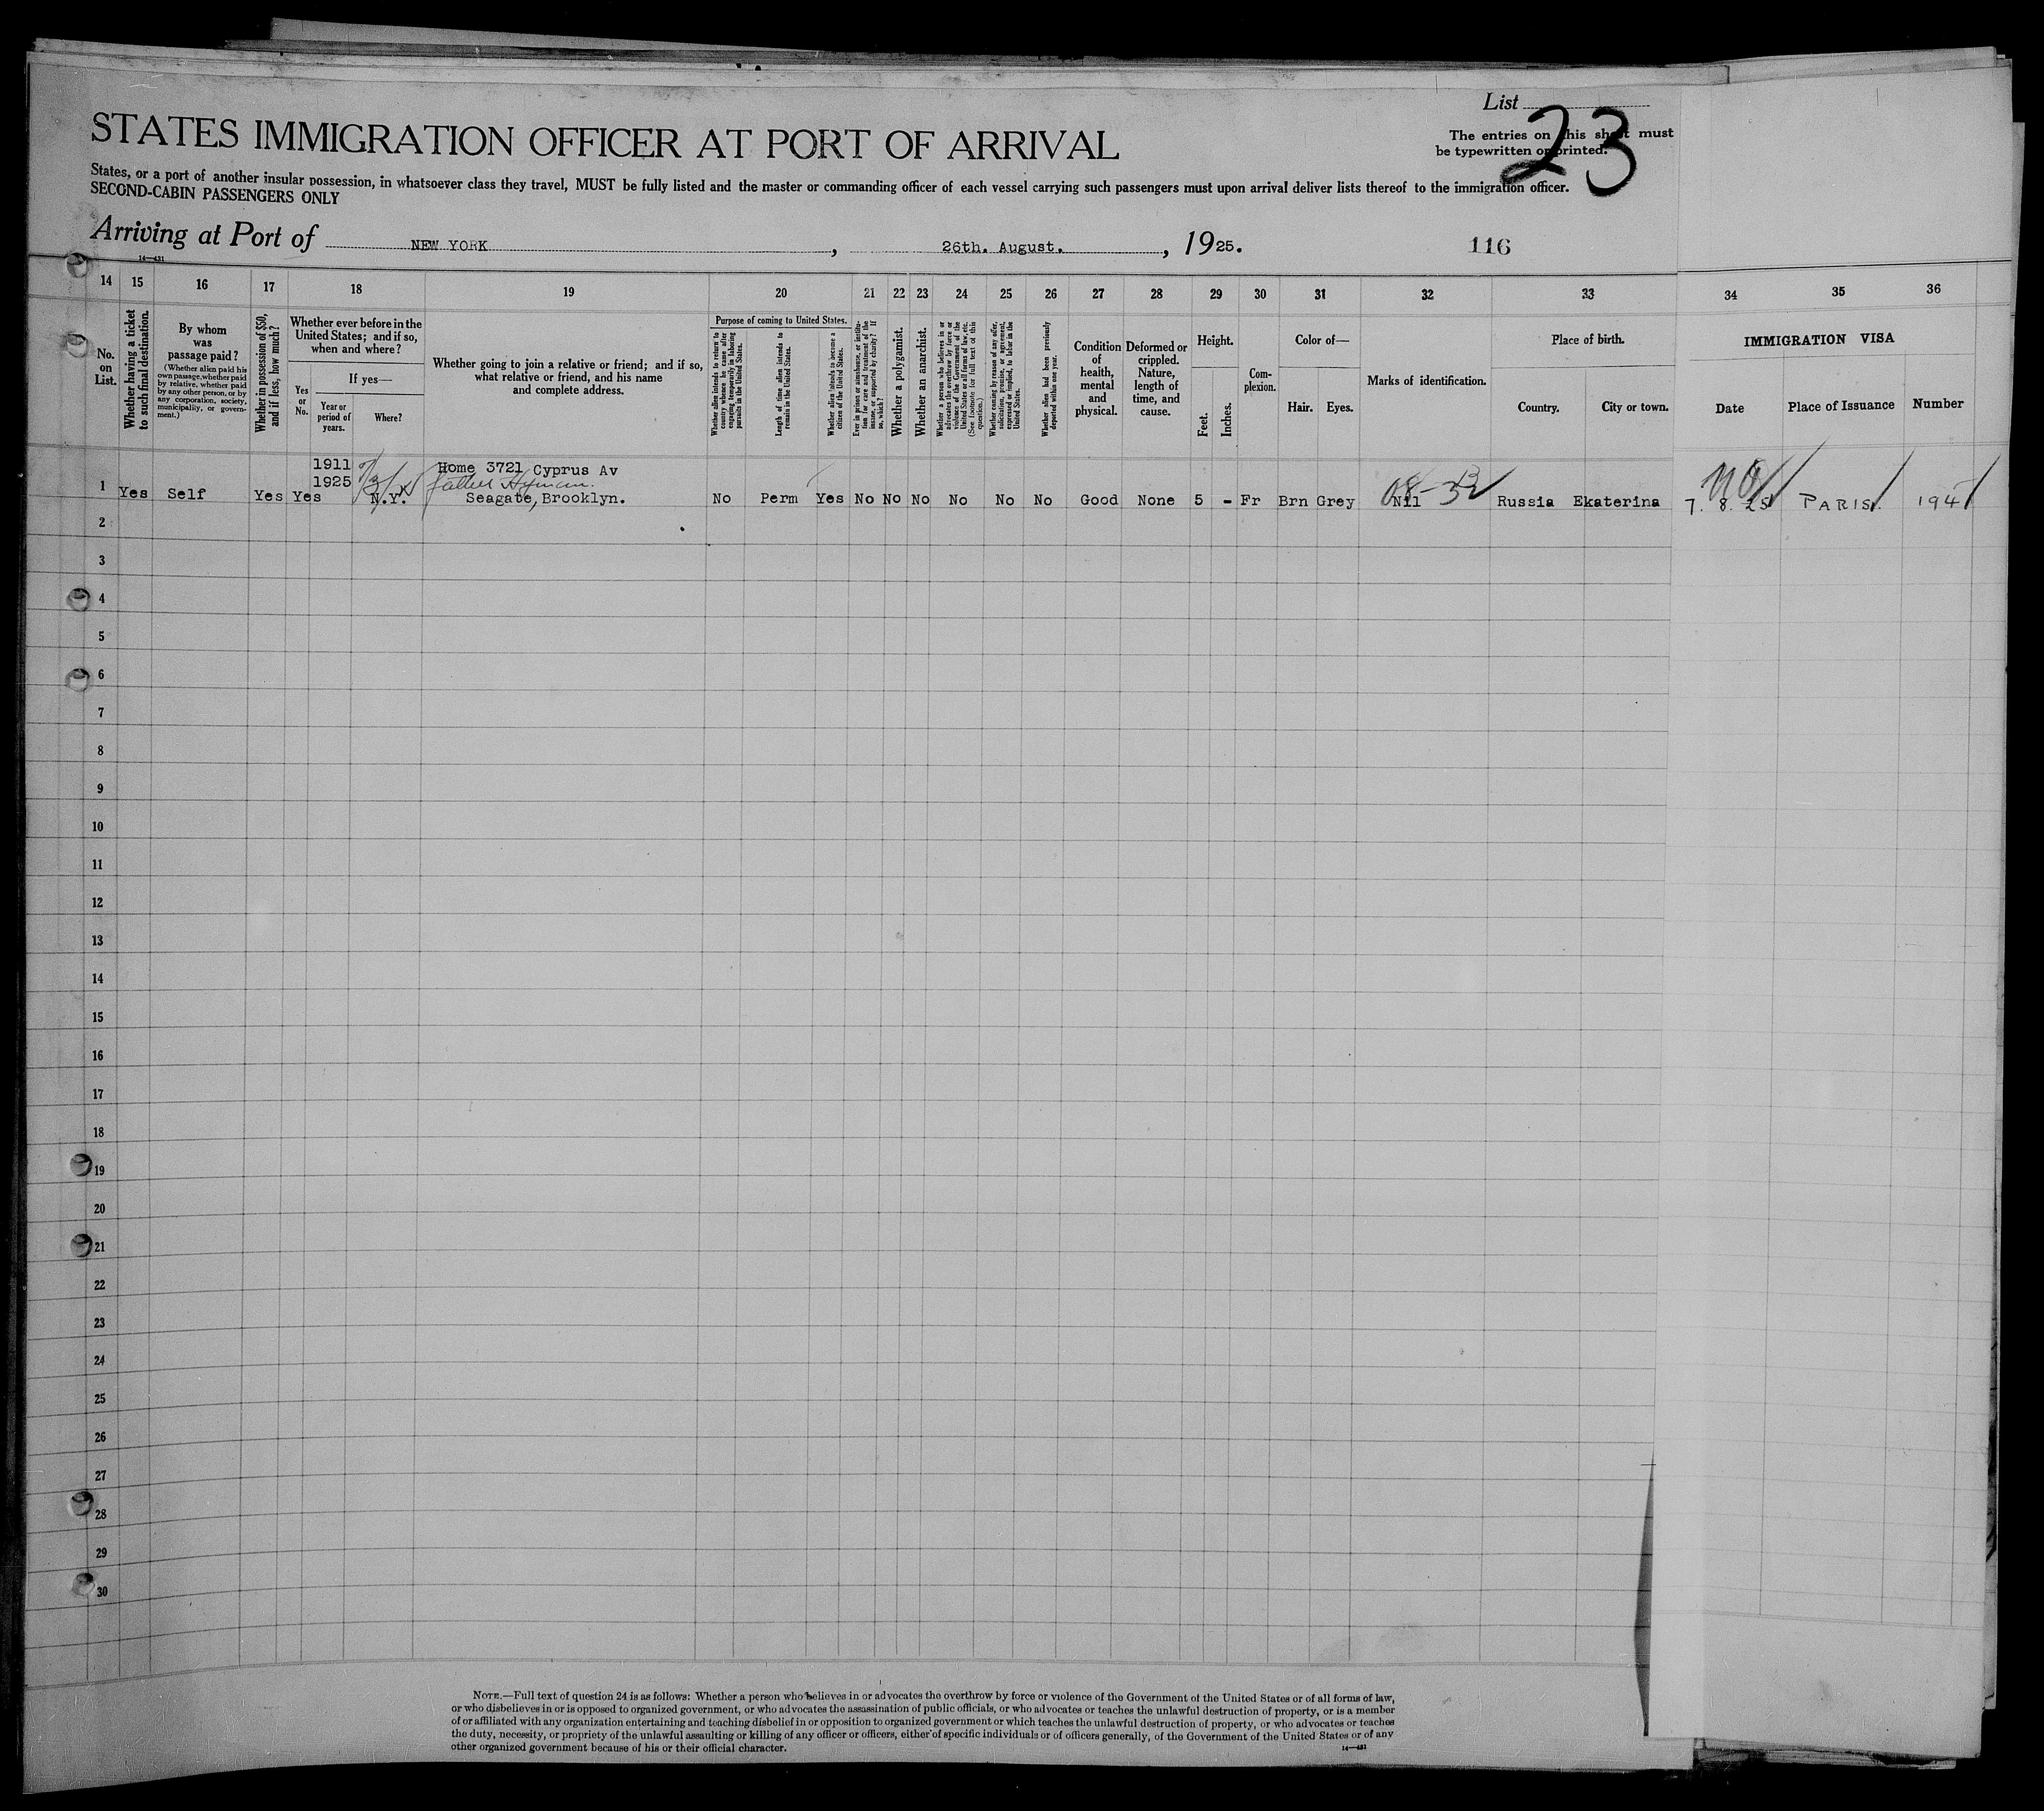 List 23
STATES IMMIGRATION OFFICER AT PORT OF ARRIVAL
The entries on this sheet must
be typewritten or printed.
States, or a port of another insular possession, in whatsoever class they travel, MUST be fully listed and the master or commanding officer of each vessel carrying such passengers must upon arrival deliver lists thereof to the immigration officer.
SECOND-CABIN PASSENGERS ONLY
Arriving at Port of NEW YORK, 26th. August., 1925. 116
14—431
14 15 16 17 18 19 20 21 22 23 24 25 26 27 28 29 30 31 32 33 34 35 36
No. on List.
Whether having a ticket to such final destination.
By whom was passage paid?
(Whether alien paid his own passage, whether paid by relative, whether paid by any other person, or by any corporation, society, municipality, or government.)
Whether in possession of $50, and if less, how much?
Whether ever before in the United States; and if so, when and where?
Yes or No.
If yes—
Year or period of years.
Where?
Whether going to join a relative or friend; and if so, what relative or friend, and his name and complete address.
Purpose of coming to United States.
Whether alien intends to return to country whence he came after engaging temporarily in laboring pursuits in the United States.
Length of time alien intends to remain in the United States.
Whether alien intends to become a citizen of the United States.
Ever in prison or almshouse, or institution for care and treatment of the insane, or supported by charity? If so, which?
Whether a polygamist.
Whether an anarchist.
Whether a person who believes in or advocates the overthrow by force or violence of the Government of the United States or all forms of law, etc. (See footnote for full text of this question.)
Whether coming by reason of any offer, solicitation, promise, or agreement, expressed or implied, to labor in the United States.
Whether alien had been previously deported within one year.
Condition of health, mental and physical.
Deformed or crippled. Nature, length of time, and cause.
Height.
Feet.
Inches.
Complexion.
Color of—
Hair.
Eyes.
Marks of identification.
Place of birth.
Country.
City or town.
IMMIGRATION VISA
Date
Place of Issuance
Number
1911 Home 3721 Cyprus Av
1925 father Hyman
1 Yes Self Yes Yes N.Y. Seagate, Brooklyn. No Perm Yes No No No No No No Good None 5 - Fr Brn Grey Nil Russia Ekaterina 7. 8. 25 PARIS 194
2
3
4
5
6
7
8
9
10
11
12
13
14
15
16
17
18
19
20
21
22
23
24
25
26
27
28
29
30
NOTE.—Full text of question 24 is as follows: Whether a person who believes in or advocates the overthrow by force or violence of the Government of the United States or of all forms of law,
or who disbelieves in or is opposed to organized government, or who advocates the assassination of public officials, or who advocates or teaches the unlawful destruction of property, or is a member
of or affiliated with any organization entertaining and teaching disbelief in or opposition to organized government or which teaches the unlawful destruction of property, or who advocates or teaches
the duty, necessity, or propriety of the unlawful assaulting or killing of any officer or officers, either of specific individuals or of officers generally, of the Government of the United States or of any
other organized government because of his or their official character.
14—431